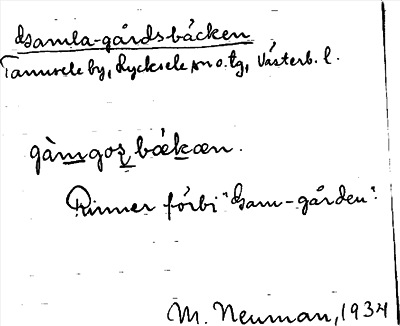 Gamla-gårdsbäcken
Tannsele by, Lycksele sn o. tg, Västerb. l.
gàmgoʂbækæn.
Rinner förbi "Gam-gården".
M. Neuman, 1934